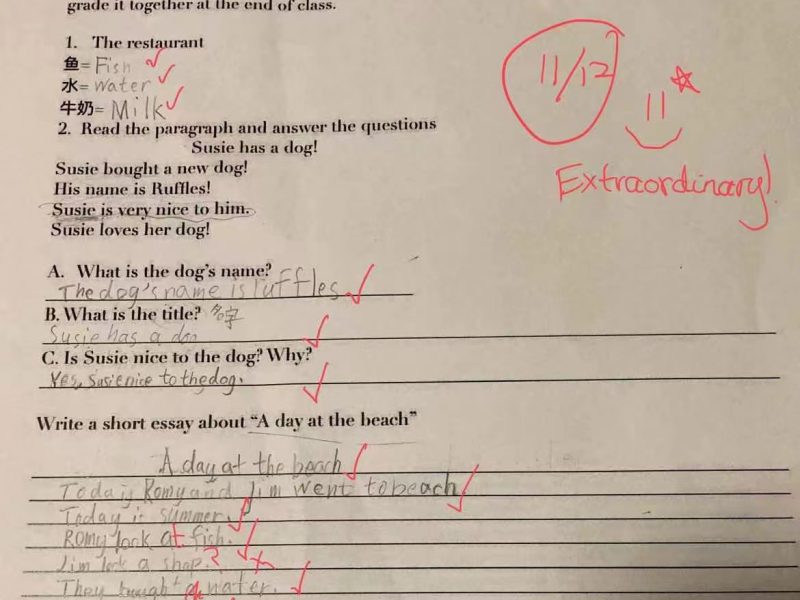 grade it together at the end of class.
1. The restaurant
鱼= Fish
水= water
牛奶= Milk
11/12
Extraordinary!
2. Read the paragraph and answer the questions
Susie has a dog!
Susie bought a new dog!
His name is Ruffles!
Susie is very nice to him.
Susie loves her dog!
A. What is the dog's name?
The dog's name is ruffles
B. What is the title? 名字
Susie has a dog
C. Is Susie nice to the dog? Why?
Yes, Susie nice to the dog.
Write a short essay about “A day at the beach”
A day at the beach
Today Romy and Jim went to beach
Today is summer.
Romy look at fish.
Jim look a shop.?
They bought a water.